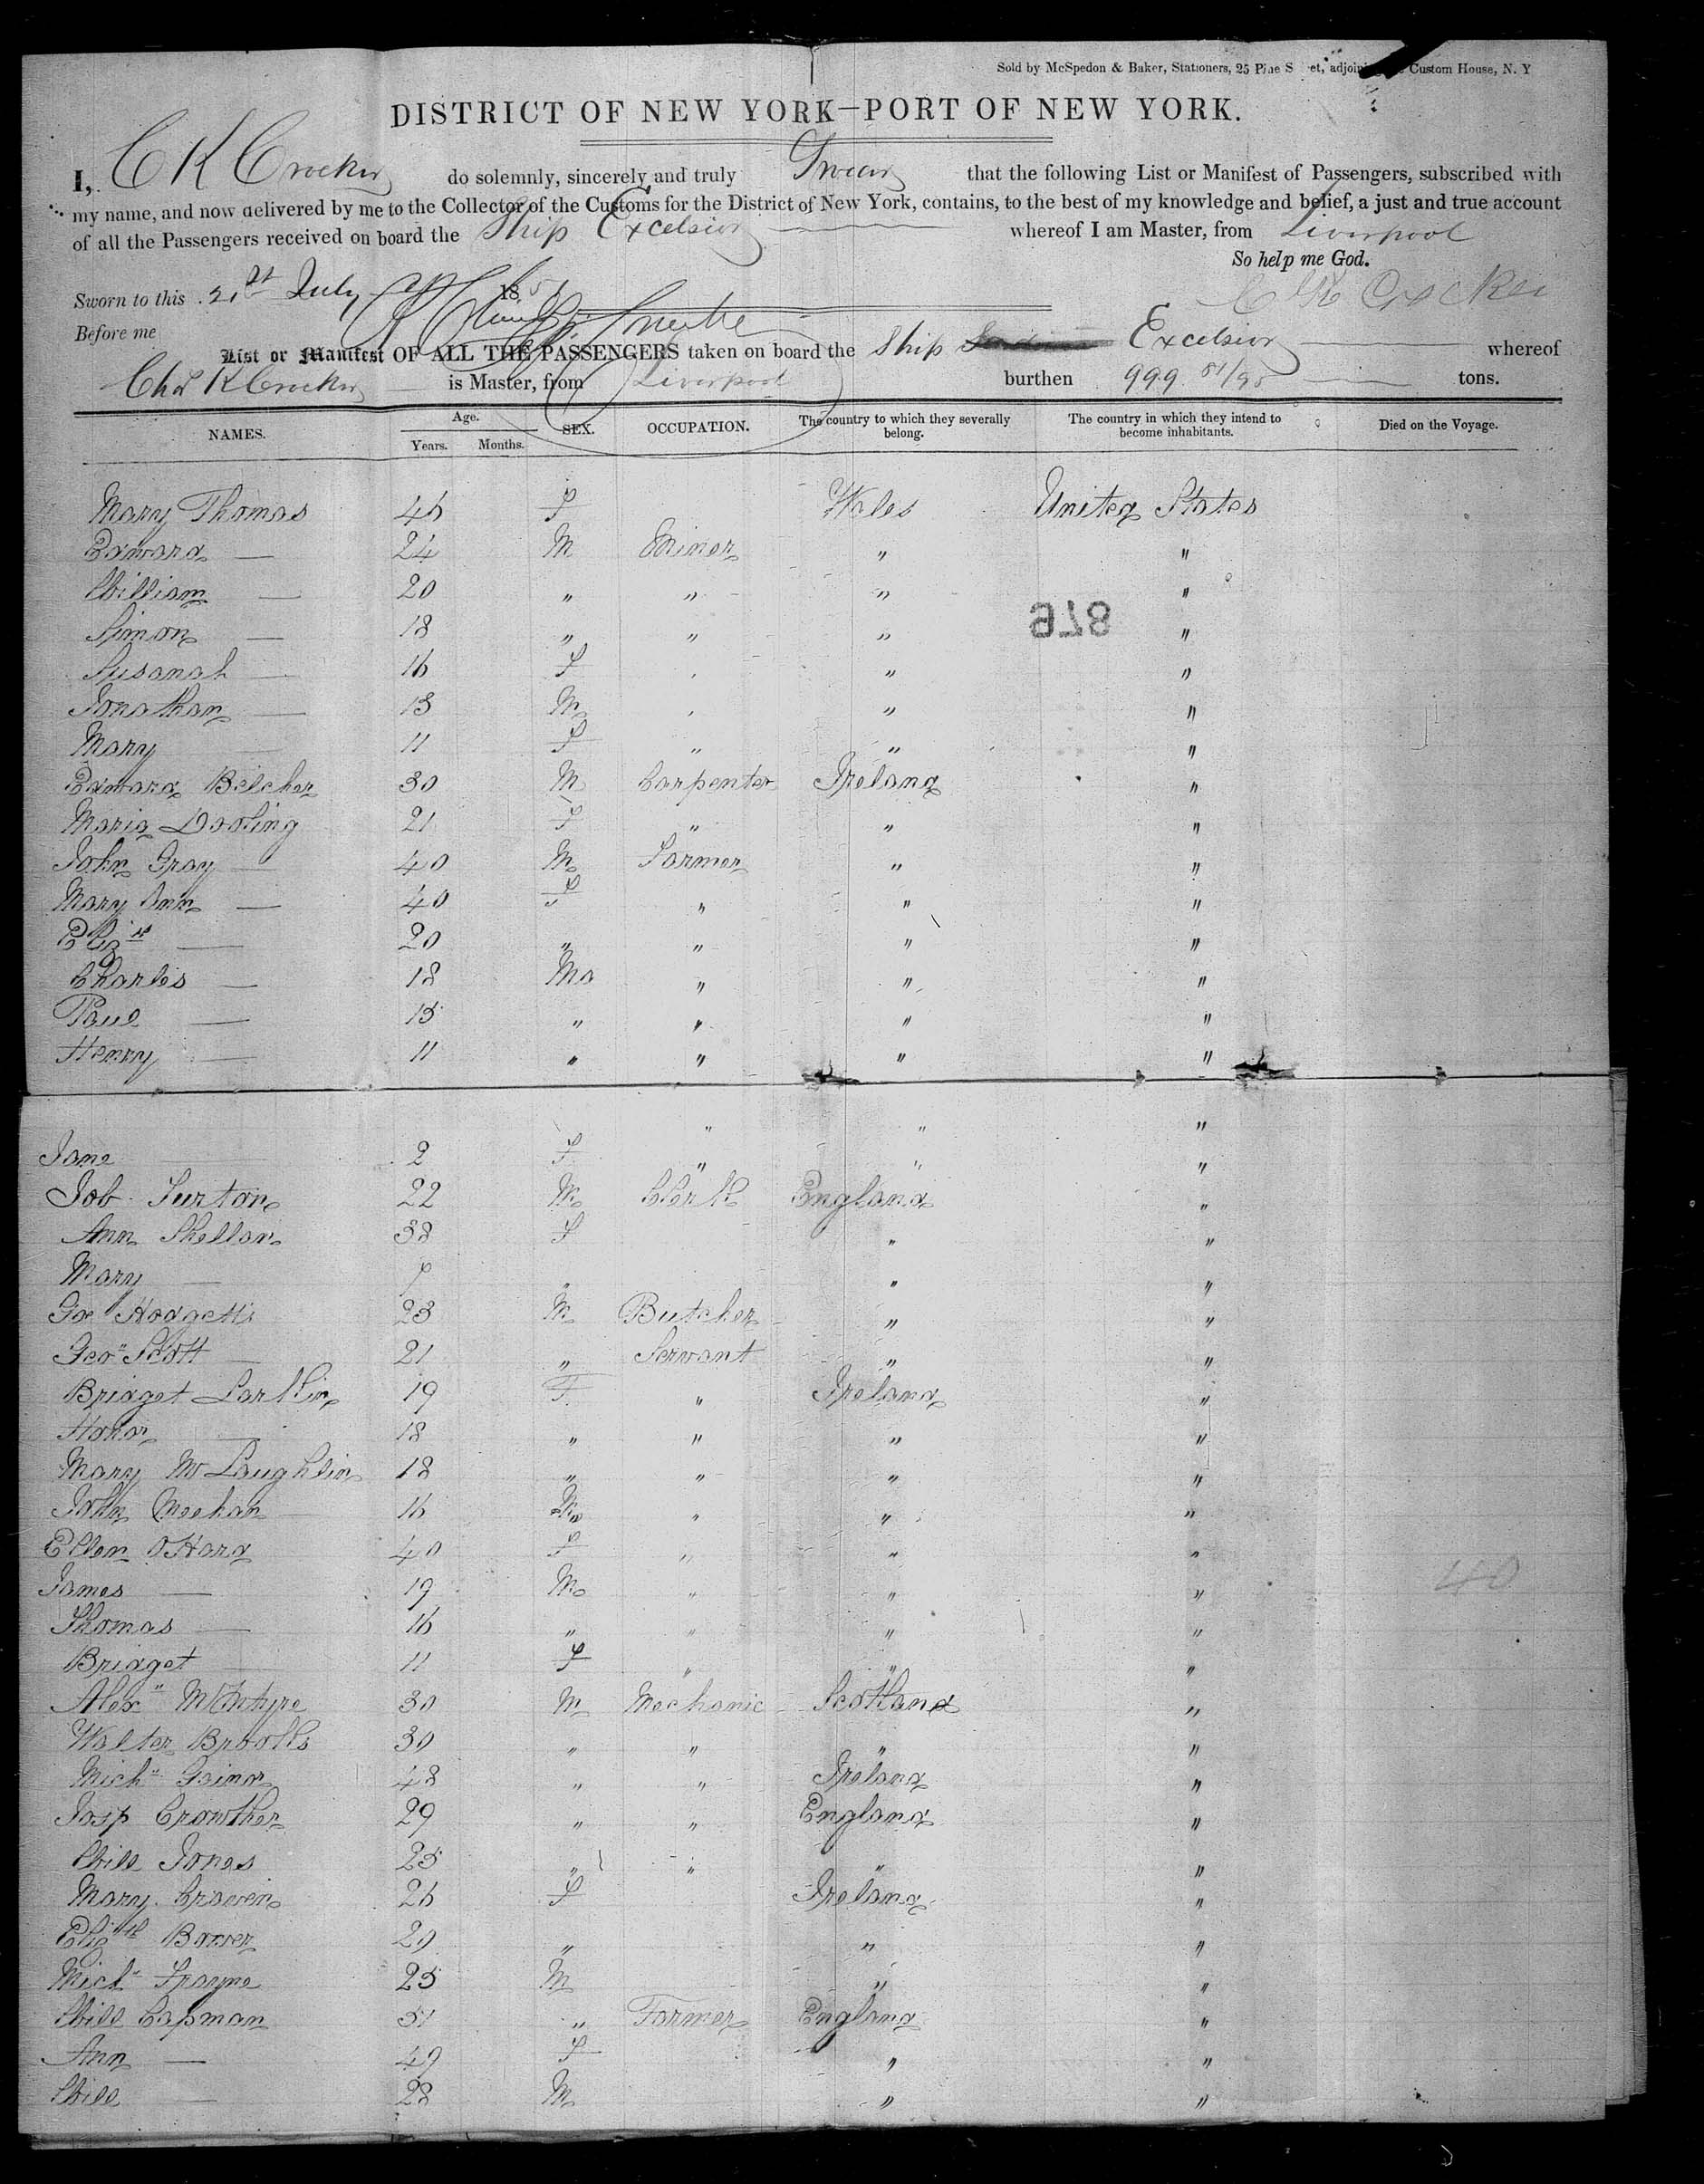 Sold by McSpedon & Baker, Stationers, 25 Pine S et, adjoining Custom House, N. Y
DISTRICT OF NEW YORK—PORT OF NEW YORK.
I, C K Crocker do solemnly, sincerely and truly Swear that the following List or Manifest of Passengers, subscribed with
my name, and now delivered by me to the Collector of the Customs for the District of New York, contains, to the best of my knowledge and belief, a just and true account
of all the Passengers received on board the Ship Excelsior whereof I am Master, from Liverpool
So help me God.
Sworn to this 21st July 185 C K Crocker
Before me
List or Manifest OF ALL THE PASSENGERS taken on board the Ship Excelsior whereof
Chas K Crocker is Master, from Liverpool burthen 999 81/95 tons.
NAMES. Age. Years. Months. SEX. OCCUPATION. The country to which they severally belong. The country in which they intend to become inhabitants. Died on the Voyage.
Mary Thomas 46 F Wales United States
Edward — 24 M Miner " "
William — 20 " " " "
878
Simon — 18 " " " "
Susanah — 16 F " "
Jonathan — 13 M " "
Mary 11 F " " "
Edward Belcher 30 M Carpenter Ireland "
Maria Dooling 21 F " " "
John Gray — 40 M Farmer " "
Mary Ann — 40 F " " "
Elizth — 20 " " " "
Charles — 18 M " " "
Paul — 15 " " " "
Henry — 11 " " " "
" " "
Jane — 2 F " " "
Job Surton 22 M Clerk England "
Ann Shellan 38 F " "
Mary — 7 " " "
Geo Hodgetts 23 M Butcher " "
Geo" Scott 21 " Servant " "
Bridget Larkin 19 F " Ireland "
Honor — 18 " " " "
Mary McLaughlin 18 " " " "
John Meehan 16 M " " "
Ellen O'Hara 40 F " " "
James — 19 M " " " 40
Thomas — 16 " " " "
Bridget — 11 F " " "
Alex" McIntyre 30 M Mechanic Scotland "
Walter Brooks 30 " " " "
Mich" Gainor 48 " " Ireland "
Josp Crowther 29 " " England "
Will Jones 25 " " " "
Mary Craven 26 F Ireland "
Elizth Bower 20 " " "
Mich" Frayne 25 M " "
Will Capman 51 " Farmer England "
Ann — 49 F " "
Will — 28 M " "